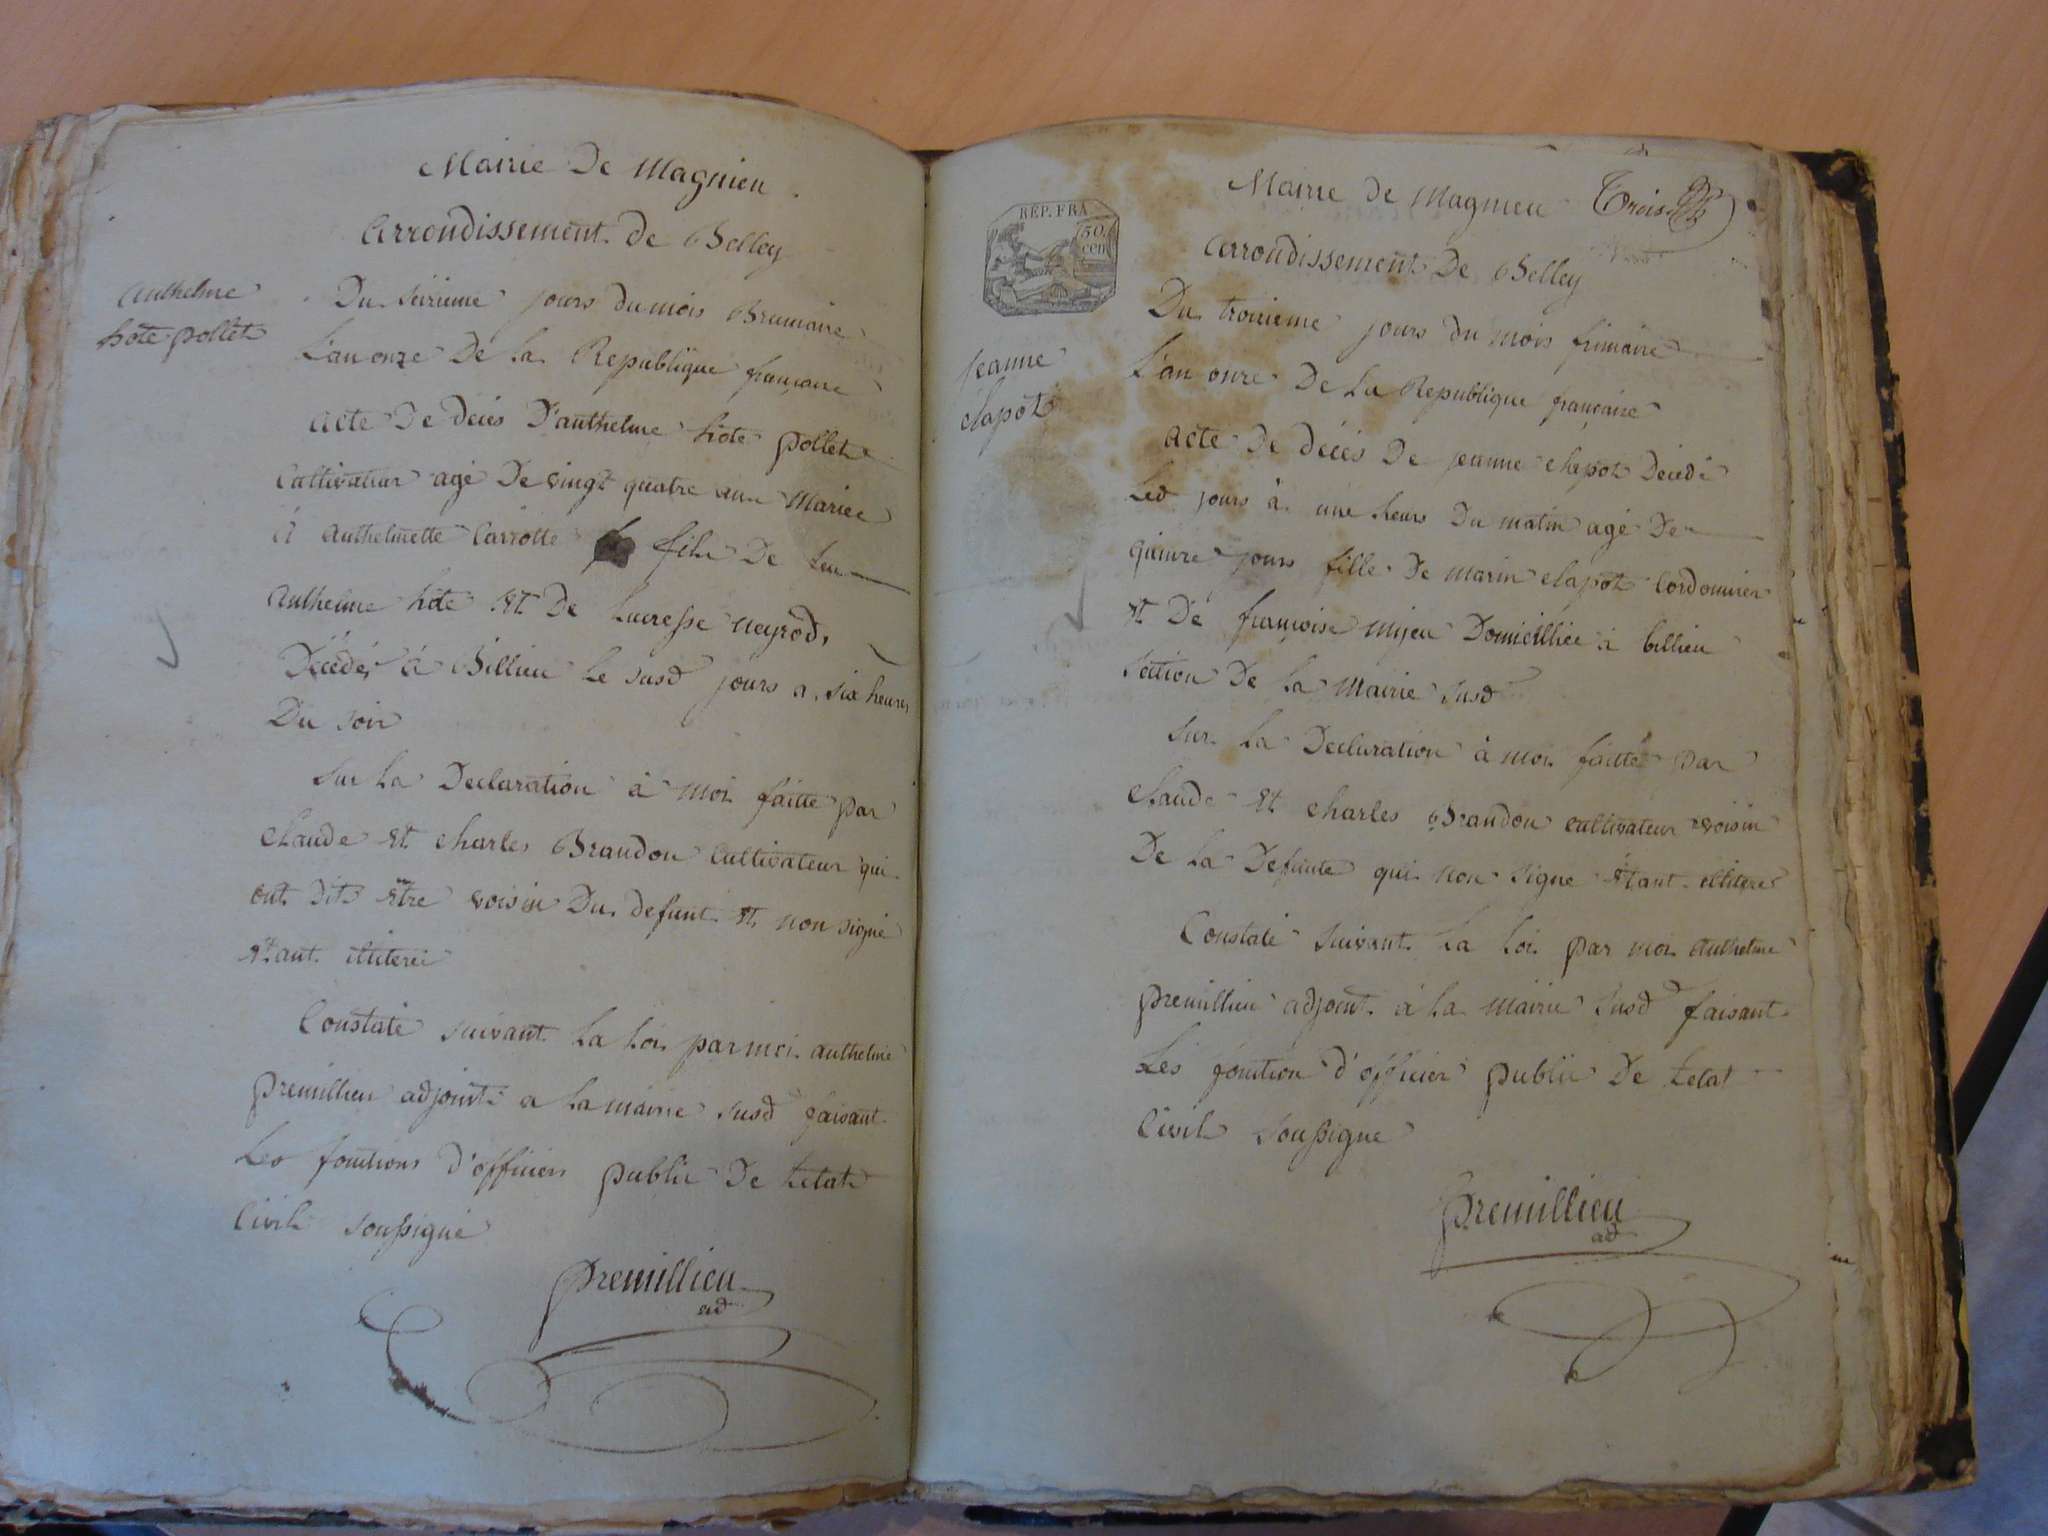 Mairie De Magnieu
Arrondissement de Belley
Anthelme
hote pollet
Du seizieme jours du mois Brumaire
L'an onze De la Republique francaise
acte De decés D'anthelme hote pollet
Cultivateur agé De vingt quatre ans Mariee
á anthelmette Carrotte fils De feu
anthelme hote et De Lucresse neyrod,
Décédé, á Billieu le susd jours a six heures
Du soir
Sur la Declaration à moi faitte par
claude et charles Brandon Cultivateur qui
ont dits etre voisin Du defunt et non signé
etant illiteré
Constaté suivant la loi par moi anthelme
premillieu adjoint a la mairie susd faisant
Les fonctions d'officier public De letat
Civil soussigné
premillieu
ad
REP. FRA
50
cen
Mairie de Magnieu Trois
Arrondissement De Belley
Jeanne
clapot
Du troisieme jours du mois frimaire
L'an onze De la Republique francaise
acte De décés De jeanne clapot Décédé
Led jours à une heure Du matin agé De
quinze jours fille De marin clapot Cordonnier
et De françoise mijeu Domicilliée à billieu
section De la Mairie susd
sur la Declaration à moi faitté par
claude et charles Brandon cultivateur voisin
De la Defunte qui non signe étant illiteré
Constaté suivant la loi par moi anthelme
premillieu adjoint à la mairie susd faisant
Les fonction d'officier public De letat
Civil soussigne
premillieu
ad